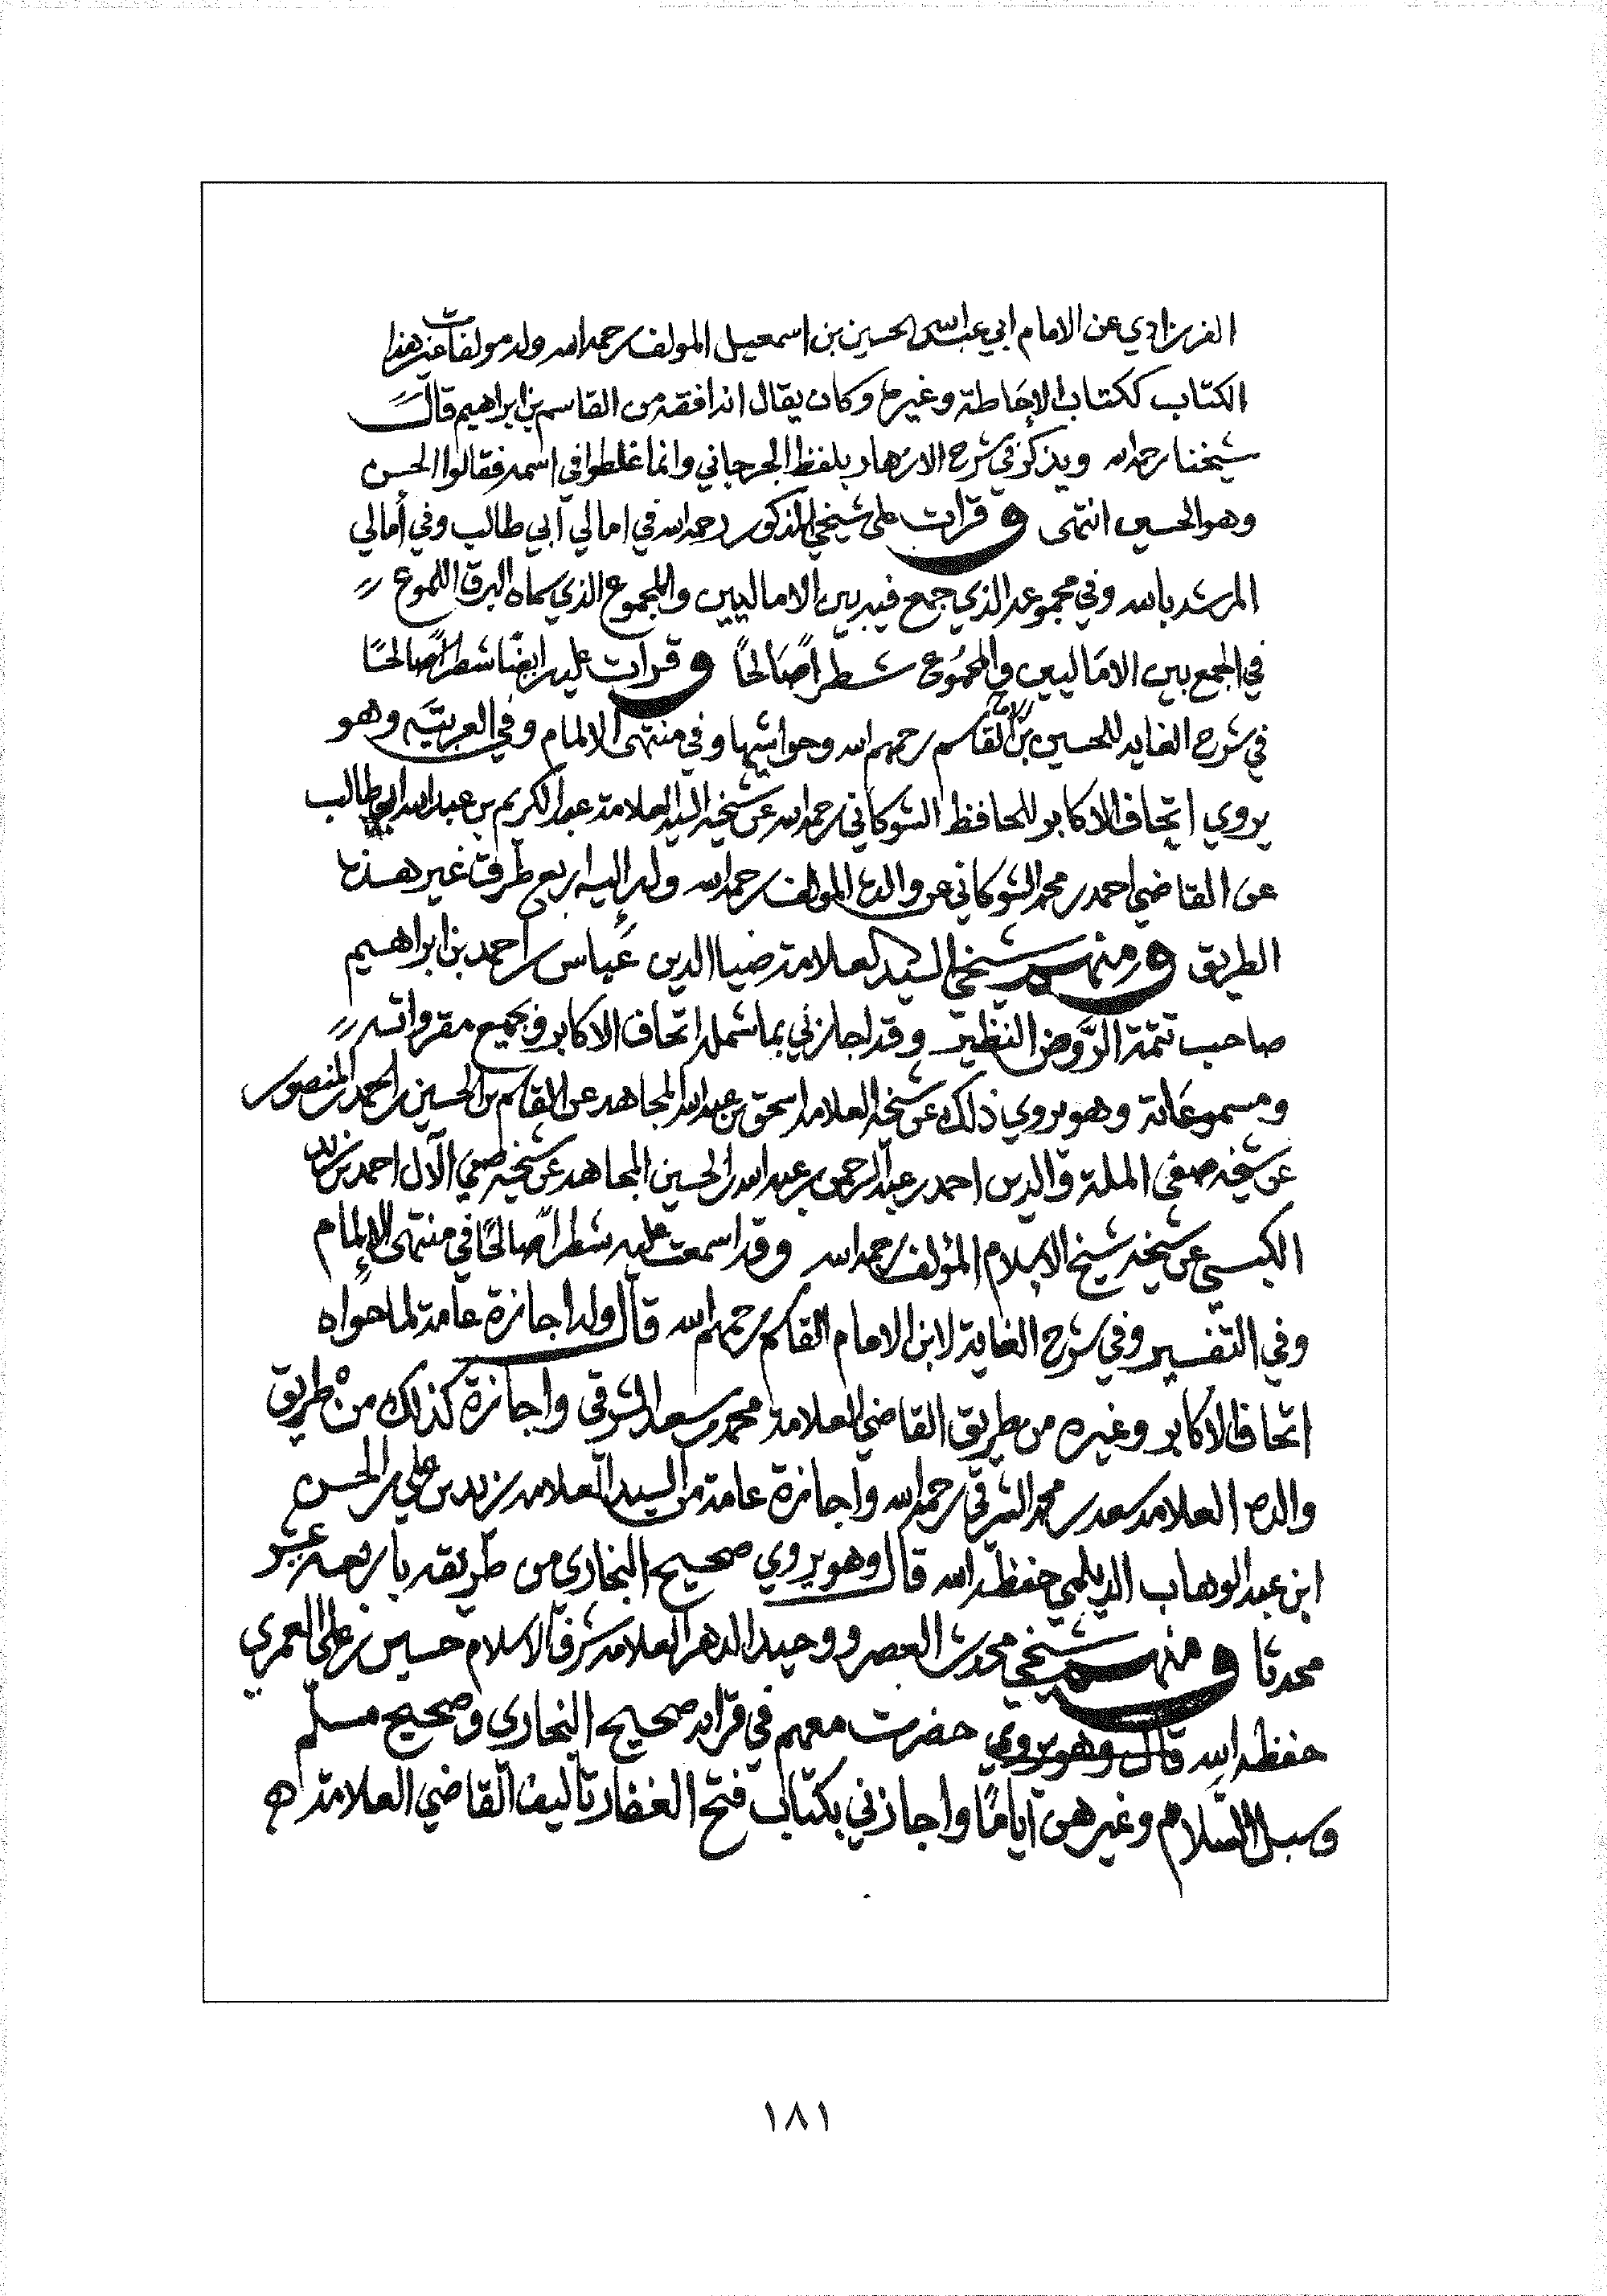 الفرزادي عن الامام ابي عبد الله الحسين بن اسمعيل المولف رحمه الله وله مولفات غير هذا
الكتاب ككتاب الإحاطة وغيرها وكان يقال انه افقه من القاسم بن ابراهيم قال
شيخنا رحمه الله ويذكر في شرح الازهار بلفظ الجرجاني وانما غلطوا في اسمه فقالوا الحسن
وهو الحسين انتهى وقرات على شيخي المذكور رحمه الله في امالي ابي طالب وفي أمالي
المرشد بالله وفي مجموعه الذي جمع فيه بين الاماليين والمجموع الذي سماه البرق اللموع
في الجمع بين الاماليين والمجموع شطراً صَالحًا وقرات عليه ايضًا شطرًا صالحًا
في شرح الغايه للحسين بن الامام القاسم رحمهم الله وحواشيها وفي منتهى الالمام وفي العربيَّه وهو
يروي اتحاف الاكابر للحافظ الشوكاني رحمه الله عن شيخه السيد العلامة عبد الكريم بن عبد الله ابي طالب
عن القاضي احمد بن محمد الشوكاني عن والده المولف رحمه الله وله إليه اربع طرق غير هذه
الطريق ومنهم شيخي السيد العلامة ضيا الدين عَباس بن احمد بن ابراهيم
صاحب تتمة الرَّوض النظير وقد اجازني بما شمله اتحاف الاكابر وبجميع مقرواته
ومسموعَاته وهو يروي ذلك عن شيخه العلامه اسحق بن عبد الله المجاهد عن القاسم بن الحسين بن احمد المنصور
عن شيخه صفي الملة والدين احمد بن عبد الرحمن بن عبد الله بن الحسين المجاهد عن شيخه صفي الآل احمد بن زيد
الكبسي عن شيخه شيخ الاسلام المؤلف رحمه الله وقد اسمعت عليه شطراً صالحًا في منتهى الإلمام
وفي التفسير وفي شرح الغاية لابن الامام القاسم رحمهم الله قال وله اجازة عامة لما حواه
اتحاف الاكابر وغيره من طريق القاضي العلامة محمد بن سعد الشرقي واجازة كذلك منْ طريق
والده العلامه سعد بن محمد الشرقي رحمه الله واجازة عامة من السيد العلامه زيد بن علي بن الحسن
ابن عبد الوهاب الديلمي حفظه الله قال وهو يروي صحيح البخاري من طريقه باربعه عشر
محدثا ومنهم شيخي محدث العصر ووحيد الدهر العلامه شرف الاسلام حسين بن علي العمري
حفظه الله قال وهو يروي حضرت معهم في قراءه صحيح البخاري وصحيح مسلم
وسبل السلام وغيرهن أيامًا واجازني بكتاب فتح الغفار تاليف القاضي العلامة اه
١٨١